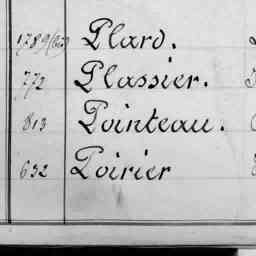 1789(bis) Plard.
772 Plassier.
813 Pointeau.
632 Poirier